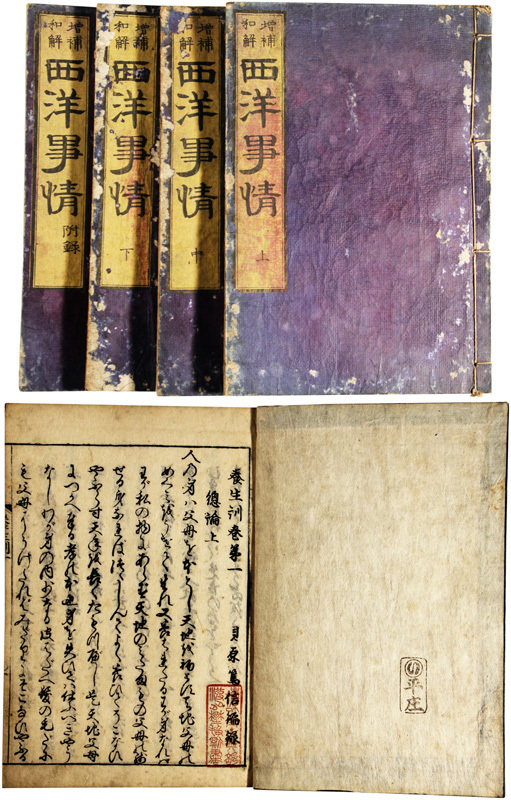 增補
和解
西洋事情
上
增補
和解
西洋事情
中
增補
和解
西洋事情
下
增補
和解
西洋事情
附錄
養生訓巻第一
總論上
貝原篤信編録
人の身ハ父母を本とし天地を初とす天地父母の
めぐミをうけて生れ又養はれたるわが身なれば
わが私の物にあらず天地のミたまもの父母の残
せる身なれはつゝしんてよく養ひてそこなひ
やふらず天年を長くたもつへし是天地父母
につかへ奉る孝の本也身を失ひては仕ふへきやう
なしわか身の内少なる皮はたへ髪の毛たにも
父母にうけたれはみたりにそこなひやふる
平庄